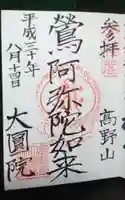 参拝
高野山
鶯阿弥陀如来
平成三十年
八月十四日
大圓院